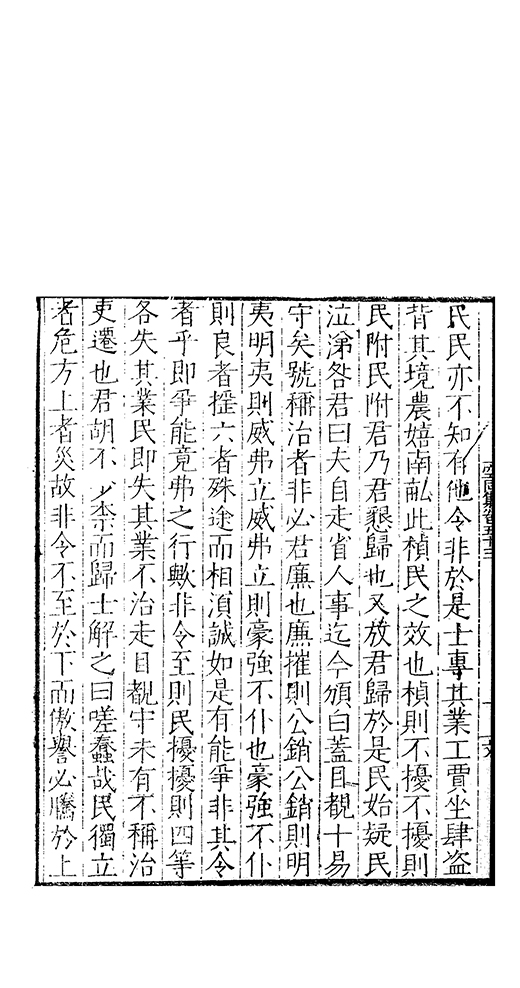 民民亦不知有他令非於是士專其業工賈坐肆盗
背其境農嬉南畝此楨民之效也楨則不擾不擾則
民附民附君乃君懇歸也又放君歸於是民始疑民
泣涕咎君曰夫自走省人事迄今頒白蓋目覩十易
守矣號稱治者非必君廉也廉摧則公銷公銷則明
夷明夷則威弗立威弗立則豪強不仆也豪強不仆
則良者摧六者殊途而相湏誠如是有能爭非其令
者乎即爭能竟弗之行歟非令至則民擾擾則四等
各失其業民即失其業不治走目覩守未有不稱治
吏遷也君胡不少柰而歸士解之曰嗟蠢哉民獨立
者危方上者災故非令不至於下而傲譽必騰於上